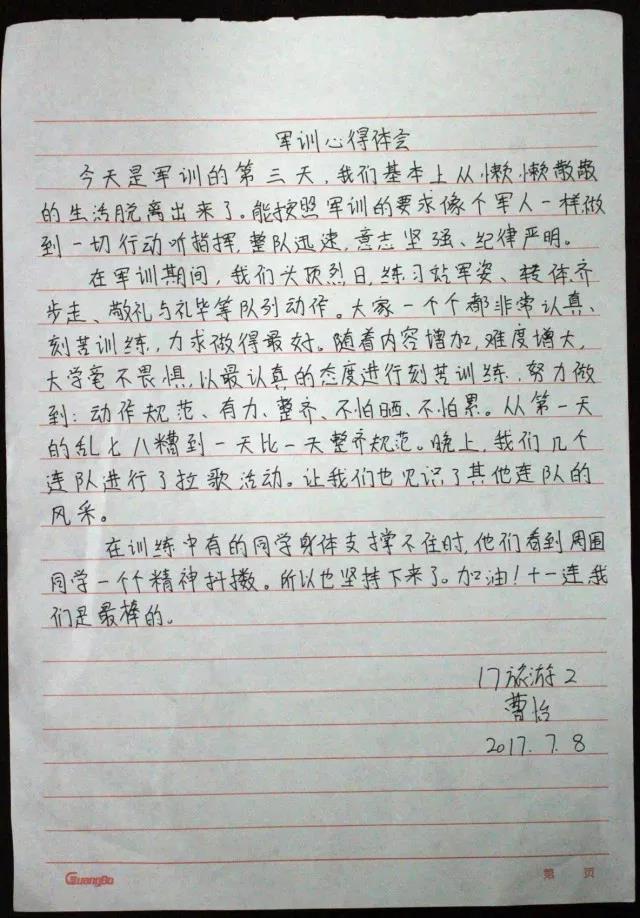 军训心得体会
今天是军训的第三天，我们基本上从懒懒散散
的生活脱离出来了。能按照军训的要求像个军人一样，做
到一切行动听指挥，整队迅速，意志坚强、纪律严明。
在军训期间，我们头顶烈日，练习站军姿、转体、齐
步走、敬礼与礼毕等队列动作。大家一个个都非常认真、
刻苦训练，力求做得最好。随着内容增加，难度增大，
大学毫不畏惧，以最认真的态度进行刻苦训练，努力做
到：动作规范、有力、整齐、不怕晒、不怕累。从第一天
的乱七八糟到一天比一天整齐规范。晚上，我们几个
连队进行了拉歌活动。让我们也见识了其他连队的
风采。
在训练中有的同学身体支撑不住时，他们看到周围
同学一个个精神抖擞。所以也坚持下来了。加油！十一连，我
们是最棒的。
17旅游2
曹怡
2017.7.8
GuangBo
第 页